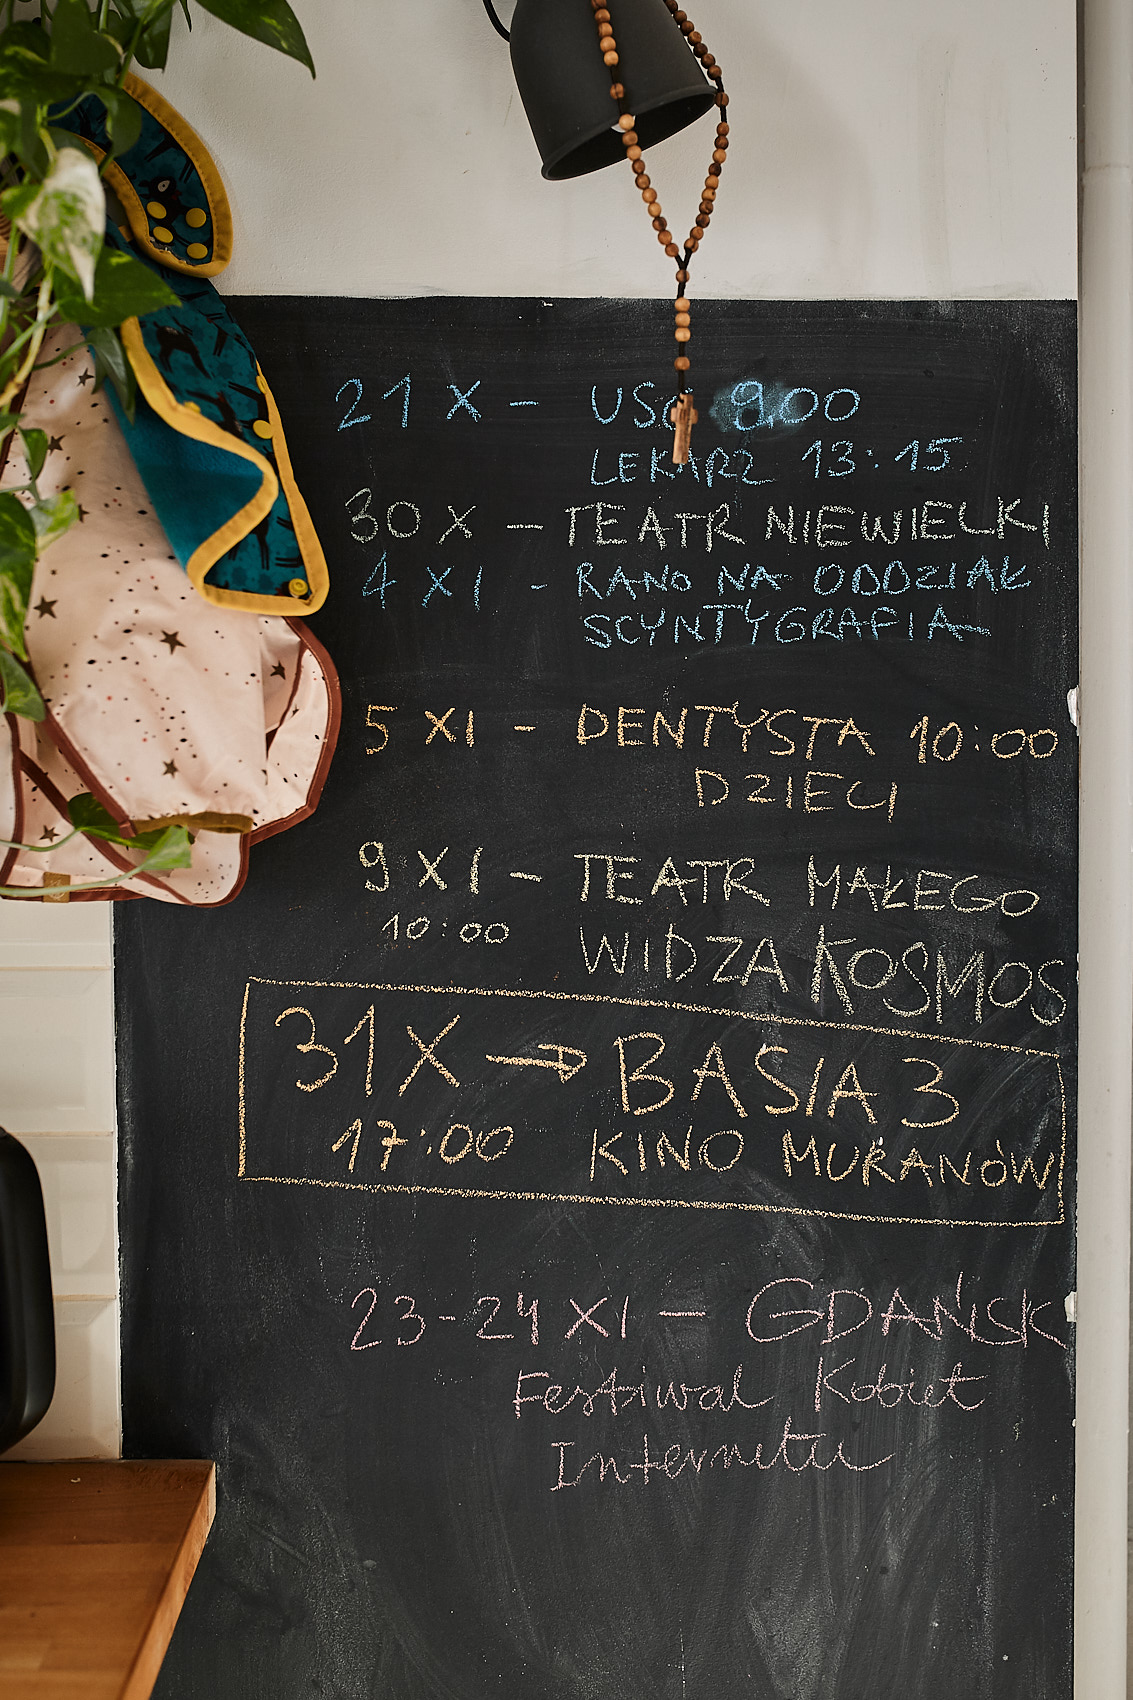 21 X - USG 9.00
LEKARZ 13:15
30 X - TEATR NIEWIELKI
4 XI - RANO NA ODDZIAŁ
SCYNTYGRAFIA
5 XI - DENTYSTA 10:00
DZIECI
9 XI - TEATR MAŁEGO
10:00 WIDZA KOSMOS
31 X → BASIA 3
17:00 KINO MURANÓW
23-24 XI - GDAŃSK
Festiwal Kobiet
Internetu